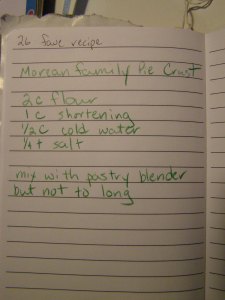 26 fave recipe
Morean family Pie Crust
2c flour
1c shortening
1/2c cold water
1/4t salt
mix with pastry blender
but not to long